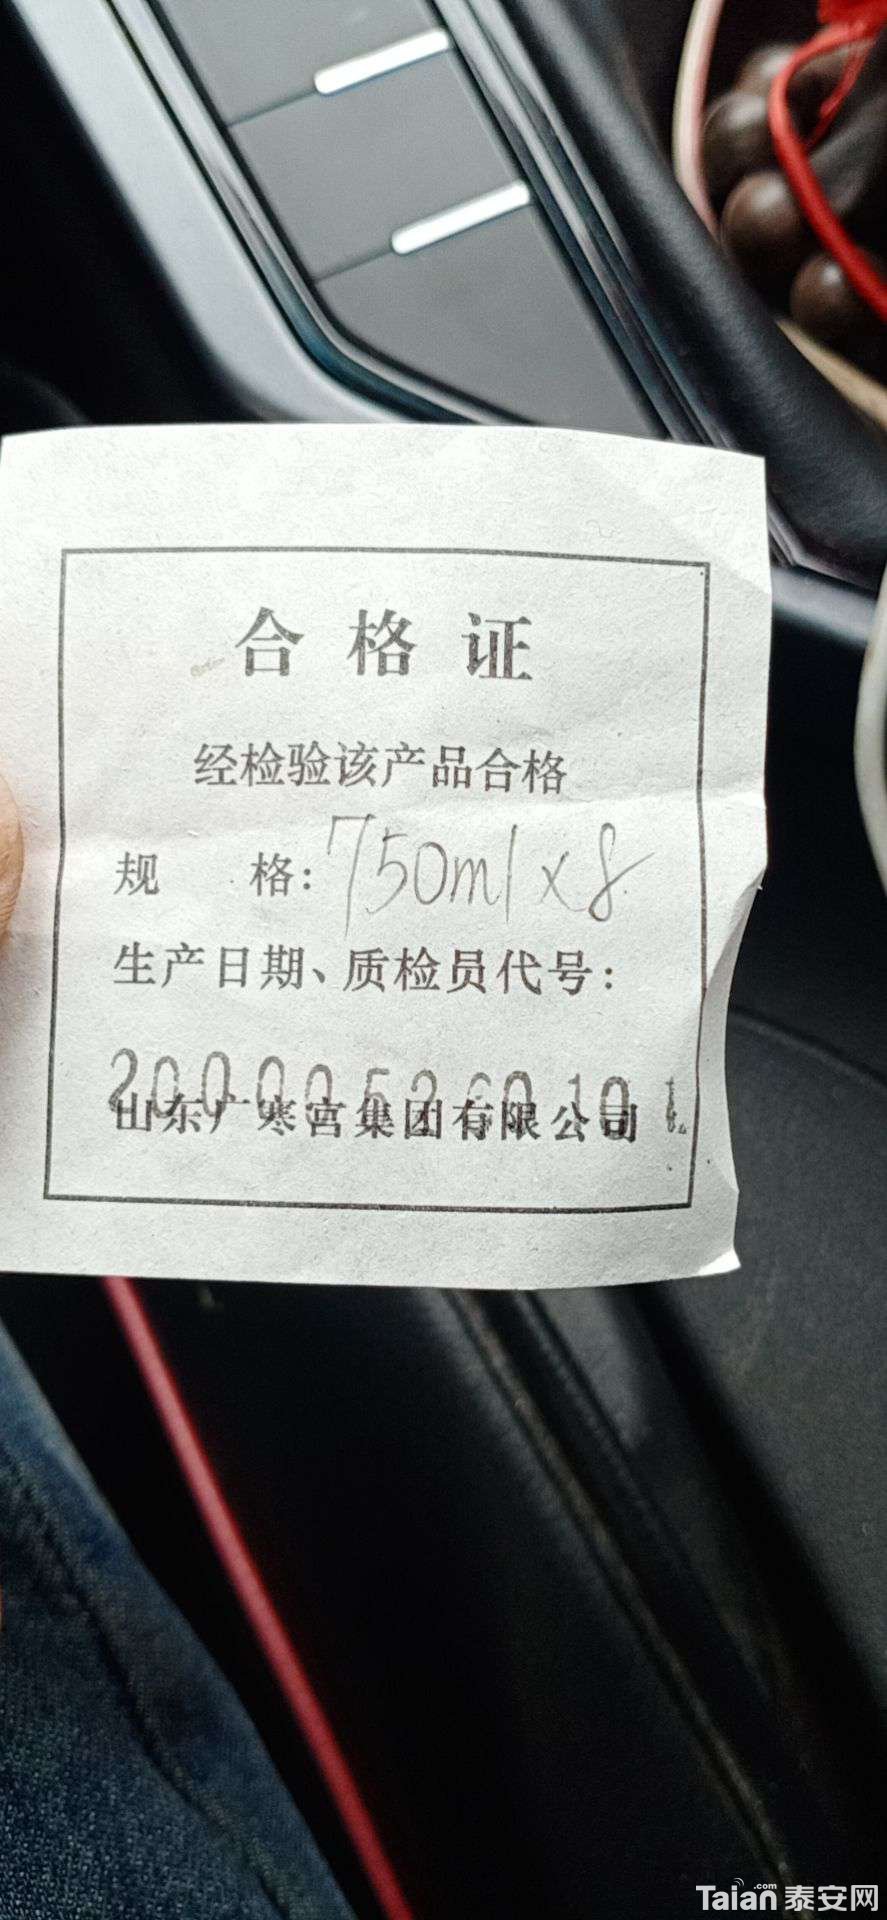 合格证
经检验该产品合格
规 格:750ml×8
生产日期、质检员代号:
山东广寒宫集团有限公司
Taian.com 泰安网